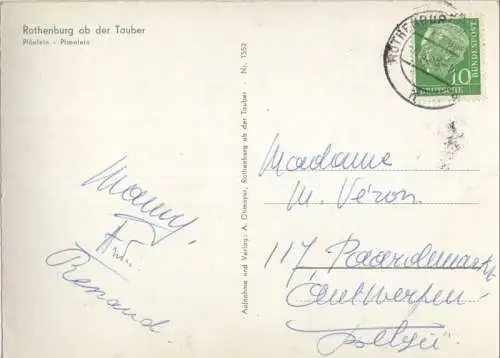 Rothenburg ob der Tauber
Plönlein - Plœnlein
Aufnahme und Verlag: A. Ohmayer, Rothenburg ob der Tauber - Nr. 1552
ROTHENBURG
10
DEUTSCHE
BUNDESPOST
Mamy,
Renaud.
Madame
M. Véron.
117 Paardenmarkt
Antwerpen